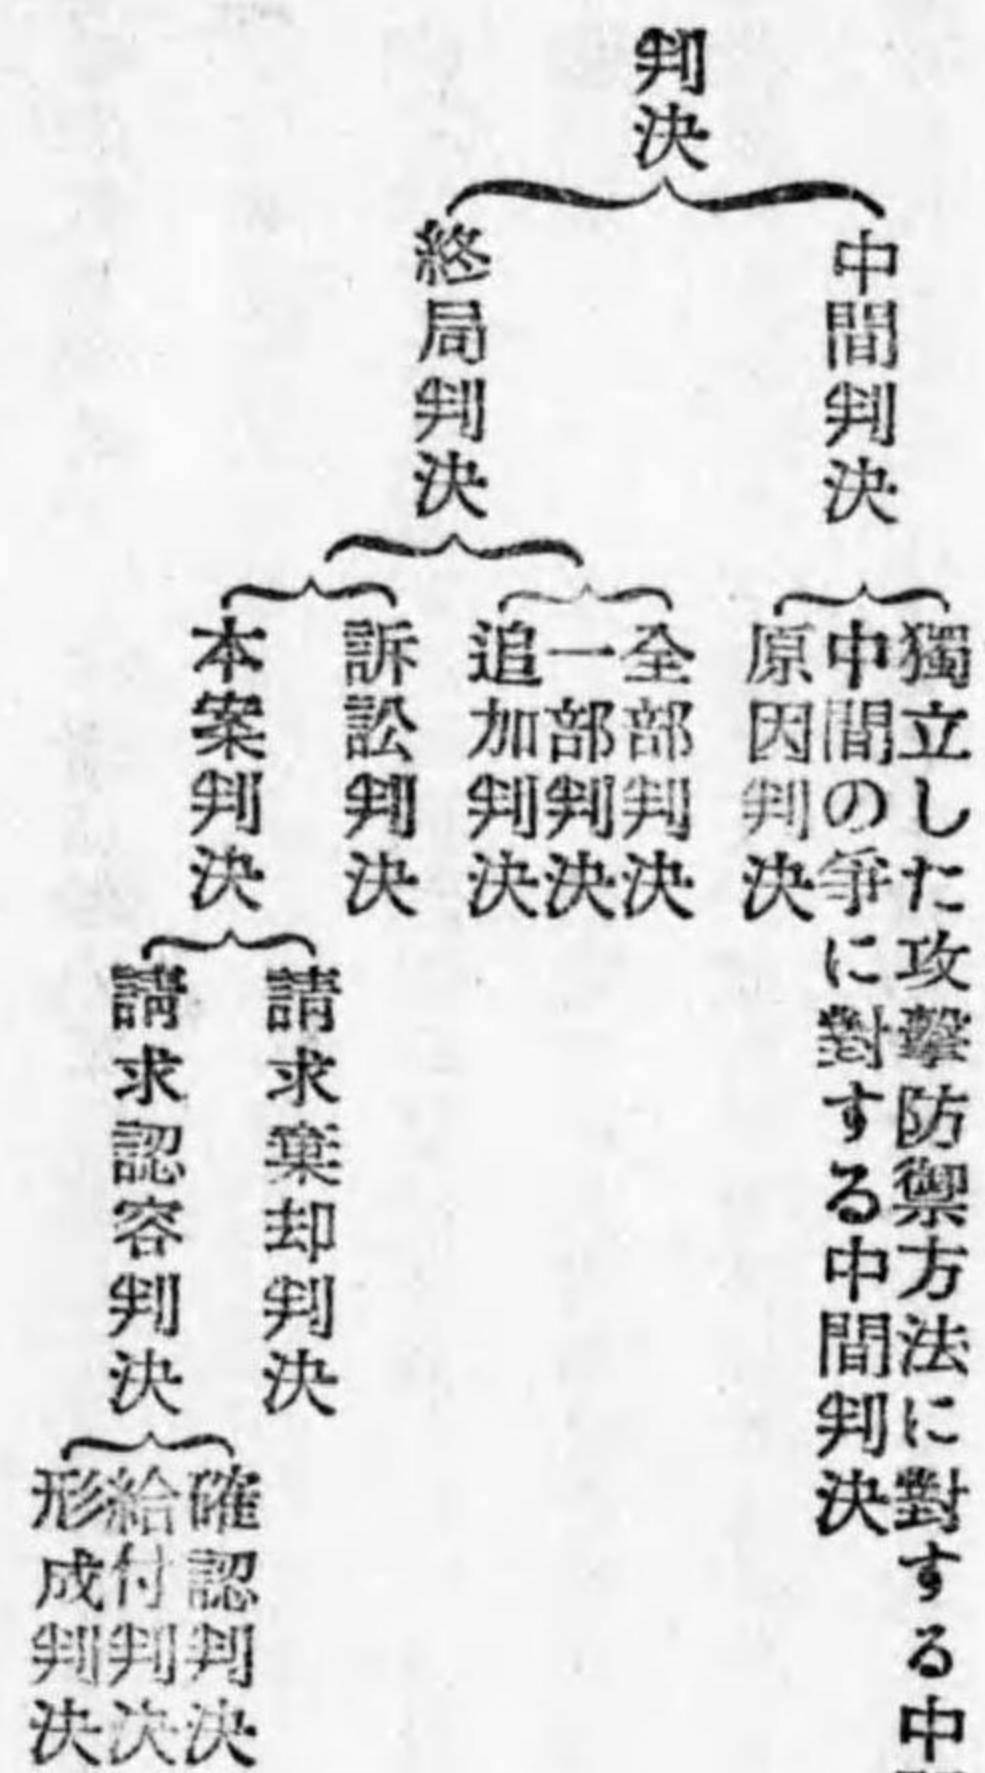 判決
中間判決
獨立した攻擊防禦方法に對する中
中間の爭に對する中間判決
原因判決
終局判決
全部判決
一部判決
追加判決
訴訟判決
本案判決
請求棄却判決
請求認容判決
確認判決
給付判決
形成判決